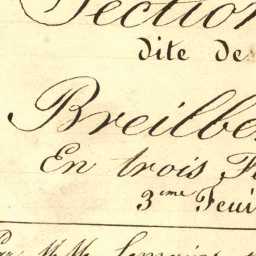 Section
dite de
Breilbe
En trois F
3eme Feui
Par M.M. Lemaire